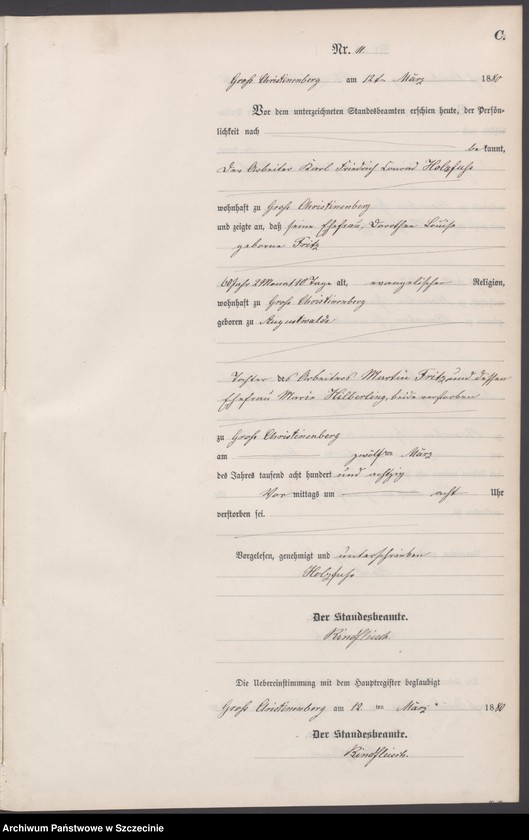 C.
Nr. 11
Groß Christinenberg am 12ten März 1880
Vor dem unterzeichneten Standesbeamten erschien heute, der Persön-
lichkeit nach
bekannt,
Der Arbeiter Karl Friedrich Conrad Holzfuß
wohnhaft zu Groß Christinenberg
und zeigte an, daß seine Ehefrau, Dorothee Louise
geborne Fritz
60 Jahr 2 Monat 10 Tage alt, evangelischer Religion,
wohnhaft zu Groß Christinenberg
geboren zu Augustwalde
Tochter des Arbeiters Martin Fritz und dessen
Ehefrau Marie Hilberling, beide verstorben
zu Groß Christinenberg
am zwölften März
des Jahres tausend acht hundert und achtzig
Vor mittags um acht Uhr
verstorben sei.
Vorgelesen, genehmigt und unterschrieben
Holzfuß
Der Standesbeamte.
Rindfleisch
Die Uebereinstimmung mit dem Hauptregister beglaubigt
Groß Christinenberg am 12 ten März 1880
Der Standesbeamte.
Rindfleisch.
Archiwum Państwowe w Szczecinie